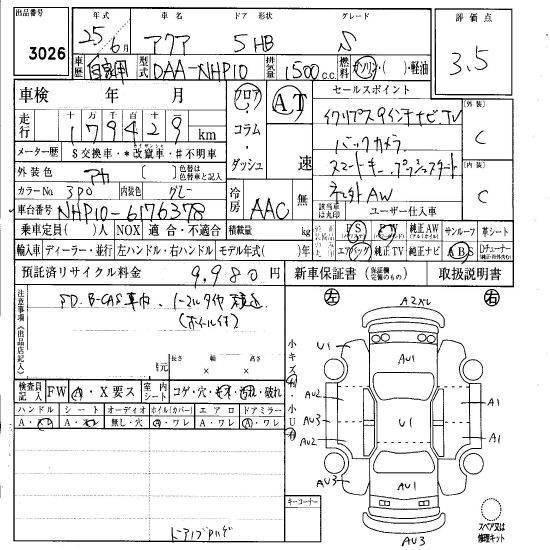 出品番号 年式 車名 ドア 形状 グレード 評価点
3026 25年6月 アクア 5HB S 3.5
車歴 自家用 型式 DAA-NHP10 排気量 1500c.c. 燃料 ガソリン・( )・軽油
車検 年 月 フロア・コラム・ダッシュ AT 速 セールスポイント
走行 十万千百十一
179429km
メーター歴 S交換車・*改竄車・#不明車
イクリプス9インチナビ、TV
バックカメラ
スマートキー、プッシュスタート
社外AW
外装 C
内装 C
外装色 アカ 色替は色替車と記入
カラーNo. 3P0 内装色 グレー
冷房 AAC 無 該当車は丸印 ユーザー仕入車
車台番号 NHP10-6176378
乗車定員( )人 NOX 適合・不適合 積載量 kg PS PW 純正AW サンルーフ 革シート
輸入車 ディーラー・並行 左ハンドル・右ハンドル モデル年式( )年 エアバッグ 純正TV 純正ナビ ABS Dチューナー
預託済リサイクル料金 9,980円 新車保証書 取扱説明書
注意事項(出品店記入)
FD. B-CAS車内、
(ホイール付)
長さ 幅 高さ
検査員記入 FW A・X要ス 室内シート コゲ・穴・キズ・汚れ・破れ
ハンドル シート オーディオ ホイル(カバー) エアロ ドアミラー
A・スレ A・スレ 無し・穴 A・ワレ A・ワレ A・ワレ
小キズ有・小U有
キーコーナー
左 右
A2XL
U1 AU1
AU2 A1
AU3 U1
AU2 A1
AU3 AU1
AU3
スペア又は修理キット